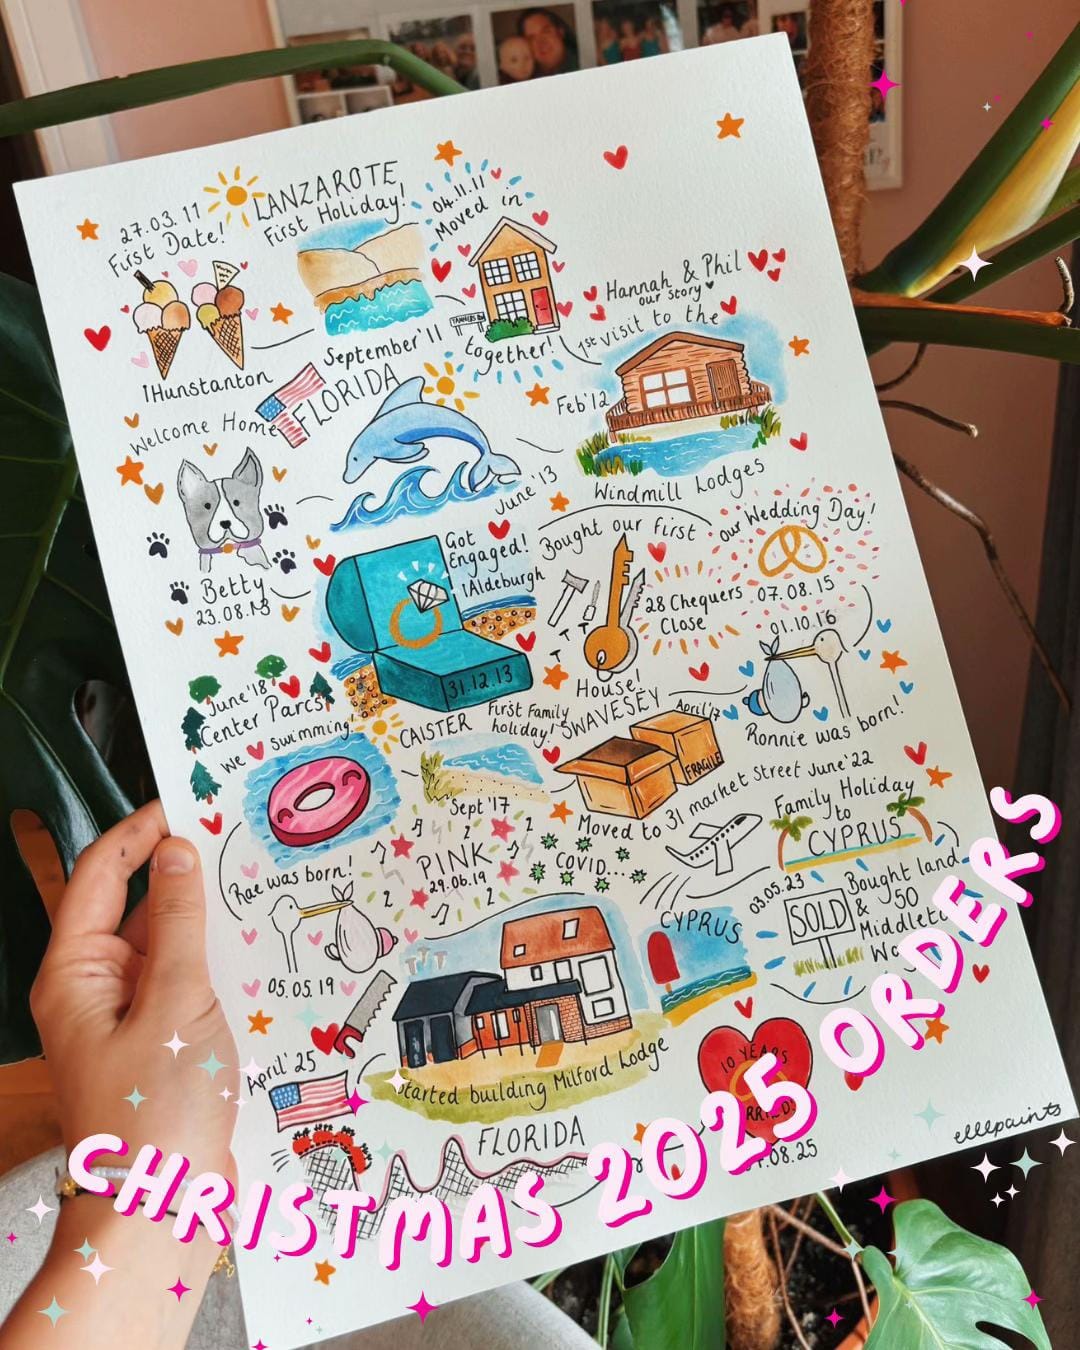 27.03.11
First Date!
Hunstanton
LANZAROTE
First Holiday!
September '11
04.11.11
Moved in
TANNERS
together!
Hannah & Phil
our story
1st visit to the
Feb '12
Windmill Lodges
Welcome Home
Betty
23.08.13
FLORIDA
June '13
Got
Engaged!
Aldeburgh
31.12.13
Bought our first
28 Chequers
Close
House!
our Wedding Day!
07.08.15
01.10.16
Ronnie was born!
SWAVESEY
April '17
FRAGILE
Moved to 31 market street June '22
CAISTER
First Family
holiday!
Sept '17
June '18
Center Parcs!
We swimming!
Rae was born!
05.05.19
PINK
29.06.19
COVID...
Family Holiday
to
CYPRUS
03.05.23
SOLD
Bought land
& 50
CYPRUS
Started building Milford Lodge
April '25
FLORIDA
10 YEARS
.08.25
ellepaints
CHRISTMAS 2025 ORDERS